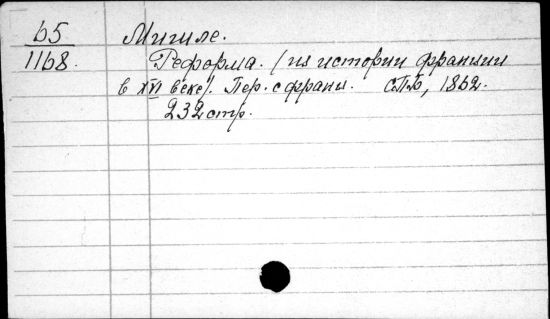 65
1168.
Мишле.
Реформа. (из истории франции
в XVI веке). Пер. с франц. СПб, 1862.
232 стр.